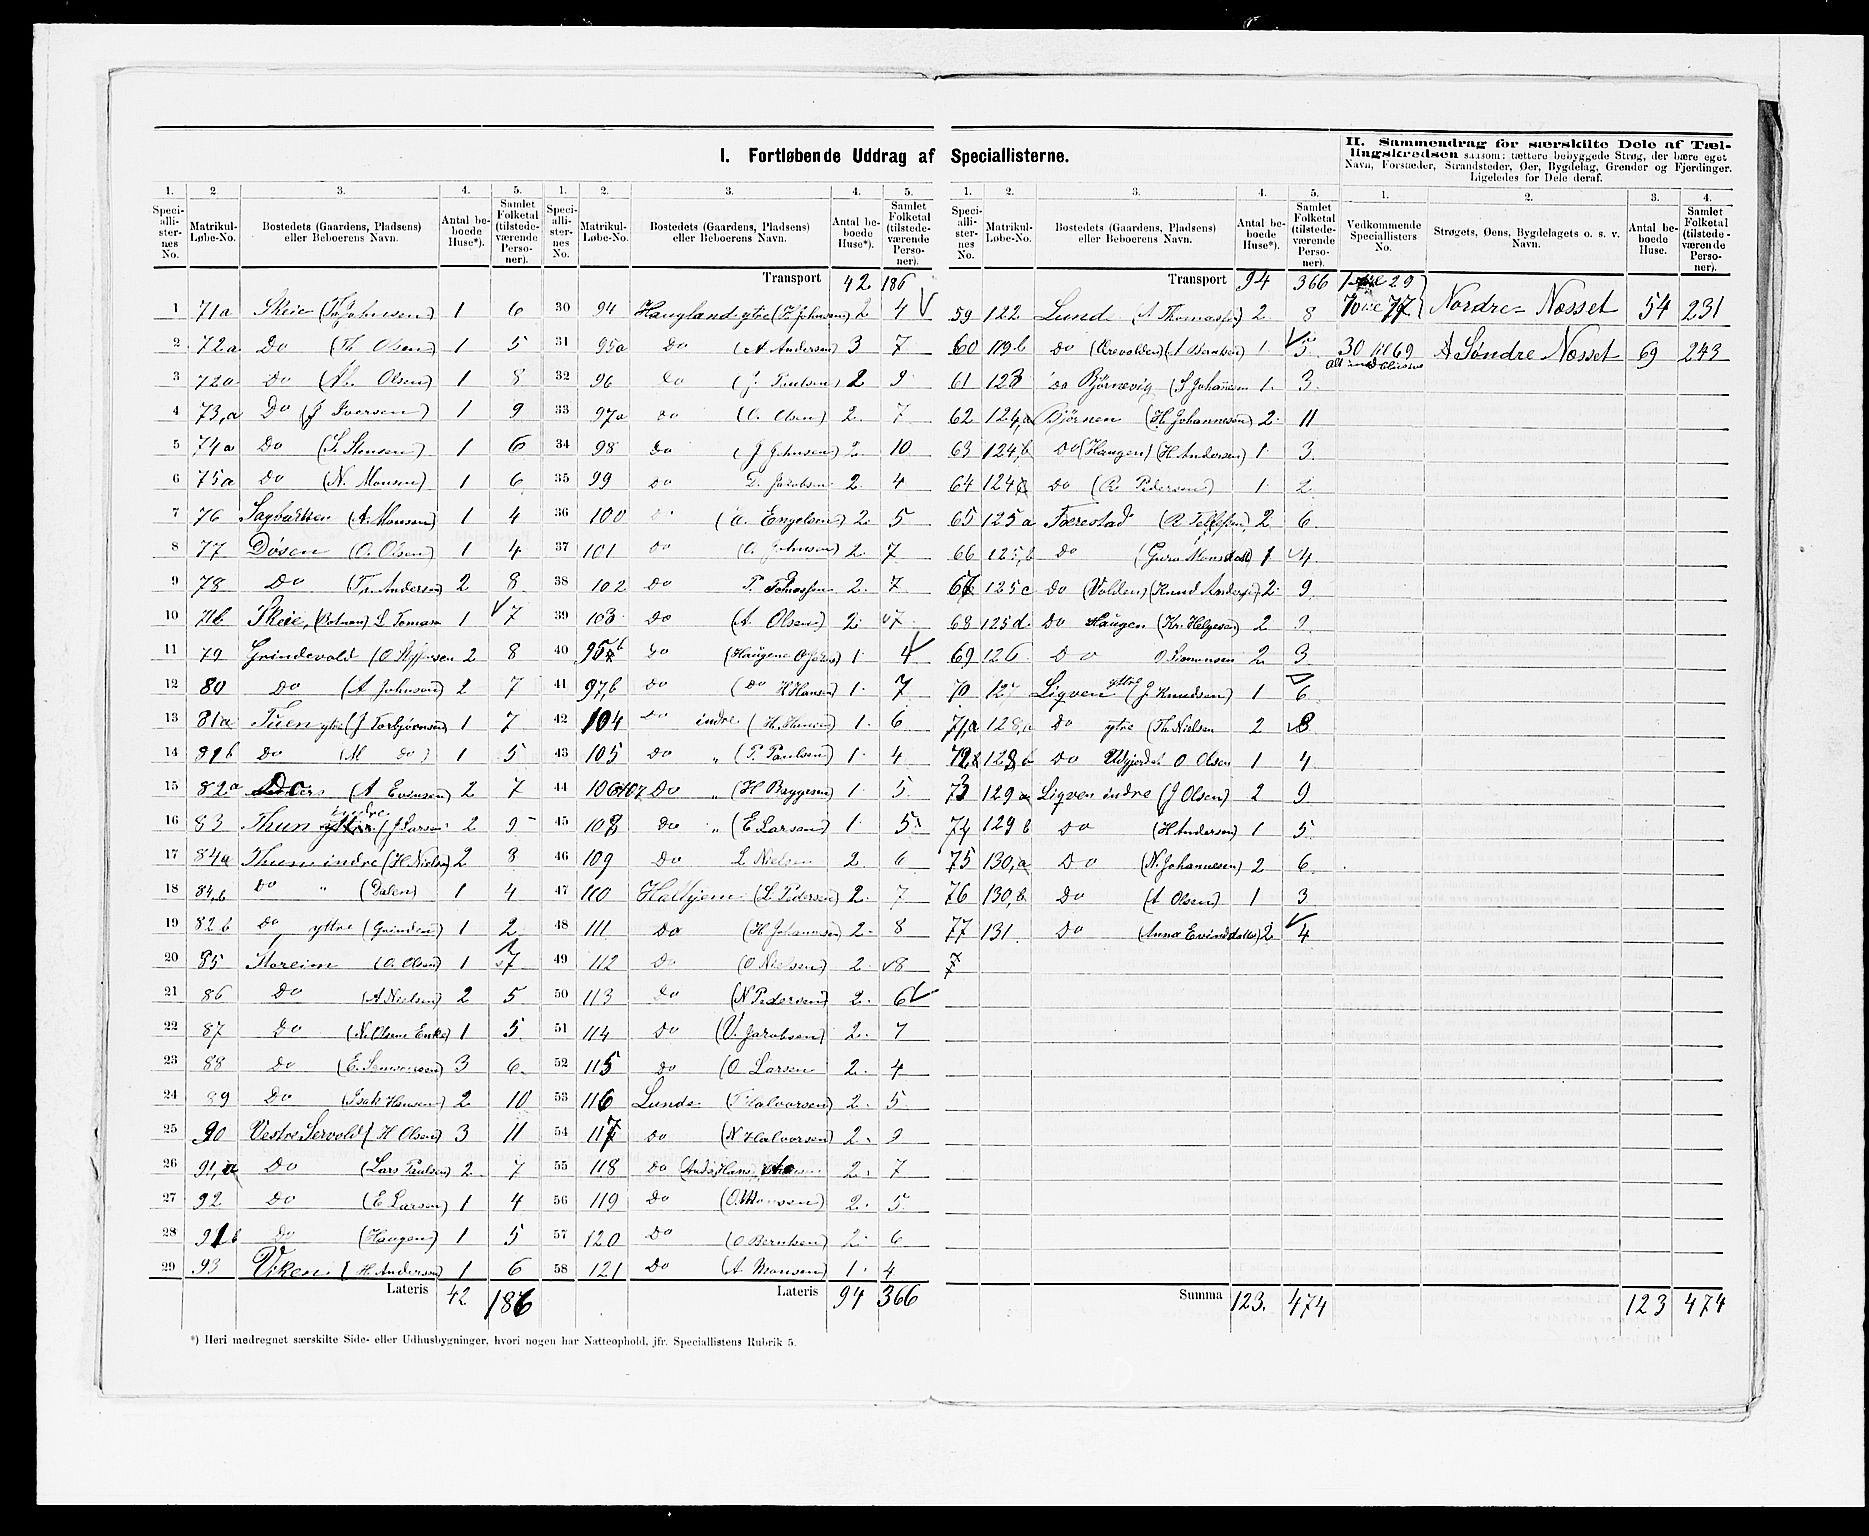 I. Fortløbende Uddrag af Speciallisterne.
II. Sammendrag for særskilte Dele af Tællingskredsen saasom: tættere bebyggede Strøg, der bære eget
Navn, Forstæder, Strandsteder, Øer, Bygdelag, Grender og Fjerdinger.
Ligeledes for Dele deraf.
1. 2 3. 4. 5. 1. 2. 3. 4. 5. 1. 2. 3. 4. 5. 1. 2. 3. 4.
Speciallisternes No. Matrikul-Løbe-No. Bostedets (Gaardens, Pladsens) eller Beboerens Navn. Antal beboede Huse*). Samlet Folketal (tilstedeværende Personer).
Speciallisternes No. Matrikul-Løbe-No. Bostedets (Gaardens, Pladsens) eller Beboerens Navn. Antal beboede Huse*). Samlet Folketal (tilstedeværende Personer).
Speciallisternes No. Matrikul-Løbe-No. Bostedets (Gaardens, Pladsens) eller Beboerens Navn. Antal beboede Huse*). Samlet Folketal (tilstedeværende Personer).
Vedkommende Speciallisters No. Strøgets, Øens, Bygdelagets o. s. v. Navn. Antal beboede Huse. Samlet Folketal (tilstedeværende Personer).
1 71a Skeie 1 6
2 72a Do (Th. Olsen) 1 5
3 72a Do Olsen) 1 8
4 73,a Do (J Iversen) 1 9
5 74a Do 1 6
6 75a Do (N. Monsen) 1 6
7 76 (A. Monsen) 1 4
8 77 Døsen (O. Olsen) 1 4
9 78 Do Andersen) 2 8
10 71b Skeie, 1 7
11 79 Grindevold 2 8
12 80 Do (A Johnsen) 2 7
13 81a Tuen ytre (J Torbjørnsen) 1 7
14 81b Do (M do) 1 5
15 82a Do (A Evensen) 2 7
16 83 Thun indre (J Larsen 2 9
17 84a Thun indre (H Nielsen) 2 8
18 84,b Do " (Dalen) 1 4
19 82b Do yttre (Grinden) 1 2
20 85 Moreim (O. Olsen) 1 7
21 86 Do (A Nielsen) 2 5
22 87 Do (N. Olsens Enke) 1 5
23 88 Do 3 6
24 89 Do (Isak Hansen) 2 10
25 90 Vestre Servold (H Olsen) 3 11
26 91,a Do (Lars Paulsen) 2 7
27 92 Do (E Larsen) 1 4
28 91b Do (Haugen) 1 5
29 93 Viken (H. Andersen) 1 6
Lateris 42 186
Transport 42 186
30 94 Haugland ytre (H Johnsen) 2 4
31 95a Do (A Andersen) 3 7
32 96 Do (J. Paulsen) 2 9
33 97a Do (O. Olsen) 2 7
34 98 Do (J Johnsen) 2 10
35 99 Do D. Jacobsen 2 4
36 100 Do Engelsen) 2 5
37 101 Do (O. Johnsen) 2 7
38 102 Do 2 7
39 103 Do (A. Olsen) 2 7
40 95b Do 1 4
41 97b Do (Do H Hansen) 1 7
42 104 Do indre (H. Hansen) 1 6
43 105 Do " (P. Paulsen) 1 4
44 106 107 Do " (H Baggesen) 1 5
45 108 Do " (E Larsen) 1 5
46 109 Do L Nielsen 2 6
47 110 Halhjem (L. Pedersen) 2 7
48 111 Do (H Johannsen) 2 8
49 112 Do (O Nielsen) 2 8
50 113 Do (N Pedersen) 2 6
51 114 Do (V. Jacobsen) 2 7
52 115 Do (O Larsen 2 4
53 116 Lunde Halvorsen) 2 5
54 117 Do (N Halvorsen) 2 9
55 118 Do 2 7
56 119 Do (O. Monsen) 2 5
57 120 Do (O Berntsen) 2 6
58 121 Do (A. Monsen) 1 4
Lateris 94 366
Transport 94 366
59 122 Lund (A Thomassen) 2 8
60 119b Do 1 5
61 123 Do Bjørnevig (S Johannesen 1 3
62 124,a Bjørnen (H. Johannesen) 2 11
63 124,b Do (Haugen) (H Andersen) 1 3
64 124 Do (R. Pedersen) 1 2
65 125a Færestad 2 6
66 125,b Do 1 4
67 125c Do (Volden) 2 9
68 125d. Do Haugen (Kr. Helgesen) 2 9
69 126 Do O Simonsen 2 3
70 127 Ligven yttre (J Knudsen) 1 6
71,a 128,a Do ytre (Th. Nielsen 2 8
72 128b Do O Olsen 1 4
73 129a Ligven indre (J Olsen) 2 9
74 129b Do (H Andersen) 1 5
75 130,a Do (N. Johannesen) 2 6
76 130,b Do (A Olsen) 1 3
77 131 Do 2 4
7
Summa 123. 474
1 til 29
70 til 77 Nordre Næsset 54 231
30 til 69 Søndre Næsset 69 243
123 474
*) Heri medregnet særskilte Side- eller Udhusbygninger, hvori nogen har Natteophold, jfr. Speciallistens Rubrik 5.